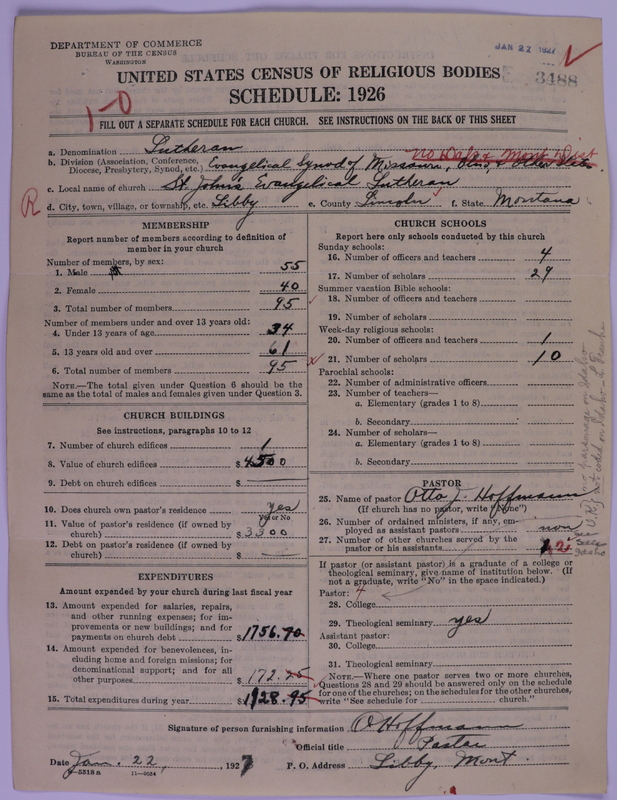 DEPARTMENT OF COMMERCE
BUREAU OF THE CENSUS
WASHINGTON
JAN 22 1927
3488
UNITED STATES CENSUS OF RELIGIOUS BODIES
SCHEDULE: 1926
1-0
FILL OUT A SEPARATE SCHEDULE FOR EACH CHURCH. SEE INSTRUCTIONS ON THE BACK OF THIS SHEET
a. Denomination Lutheran
b. Division (Association, Conference, Diocese, Presbytery, Synod, etc.) Evangelical Synod of Missouri, Ohio, & Other States
No Dak & Mont Dist
c. Local name of church St. Johns Evangelical Lutheran
R
d. City, town, village, or township, etc. Libby e. County Lincoln f. State Montana
MEMBERSHIP
Report number of members according to definition of
member in your church
Number of members, by sex:
1. Male 55
2. Female 40
3. Total number of members 95
Number of members under and over 13 years old:
4. Under 13 years of age 34
5. 13 years old and over 61
6. Total number of members 95
NOTE.—The total given under Question 6 should be the
same as the total of males and females given under Question 3.
CHURCH BUILDINGS
See instructions, paragraphs 10 to 12
7. Number of church edifices 1
8. Value of church edifices $ 4500
9. Debt on church edifices $
10. Does church own pastor's residence yes
Yes or No
11. Value of pastor's residence (if owned by
church) $ 3300
12. Debt on pastor's residence (if owned by
church) $
EXPENDITURES
Amount expended by your church during last fiscal year
13. Amount expended for salaries, repairs,
and other running expenses; for im-
provements or new buildings; and for
payments on church debt $ 1756.70
14. Amount expended for benevolences, in-
cluding home and foreign missions; for
denominational support; and for all
other purposes $ 172.25
15. Total expenditures during year $ 1928.95
CHURCH SCHOOLS
Report here only schools conducted by this church
Sunday schools:
16. Number of officers and teachers 4
17. Number of scholars 29
Summer vacation Bible schools:
18. Number of officers and teachers
19. Number of scholars
Week-day religious schools:
20. Number of officers and teachers 1
21. Number of scholars 10
Parochial schools:
22. Number of administrative officers
23. Number of teachers—
a. Elementary (grades 1 to 8)
b. Secondary
24. Number of scholars—
a. Elementary (grades 1 to 8)
b. Secondary
PASTOR
25. Name of pastor Otto J. Hoffmann
(If church has no pastor, write "None")
26. Number of ordained ministers, if any, em-
ployed as assistant pastors non
27. Number of other churches served by the
pastor or his assistants 2
If pastor (or assistant pastor) is a graduate of a college or
theological seminary, give name of institution below. (If
not a graduate, write "No" in the space indicated.)
Pastor: 4
28. College
29. Theological seminary yes
Assistant pastor:
30. College
31. Theological seminary
NOTE.—Where one pastor serves two or more churches,
Questions 28 and 29 should be answered only on the schedule
for one of the churches; on the schedules for the other churches,
write "See schedule for church."
Signature of person furnishing information O Hoffmann
Official title Pastor
Date Jan. 22, 1927 P. O. Address Libby, Mont.
5518a 11—9034